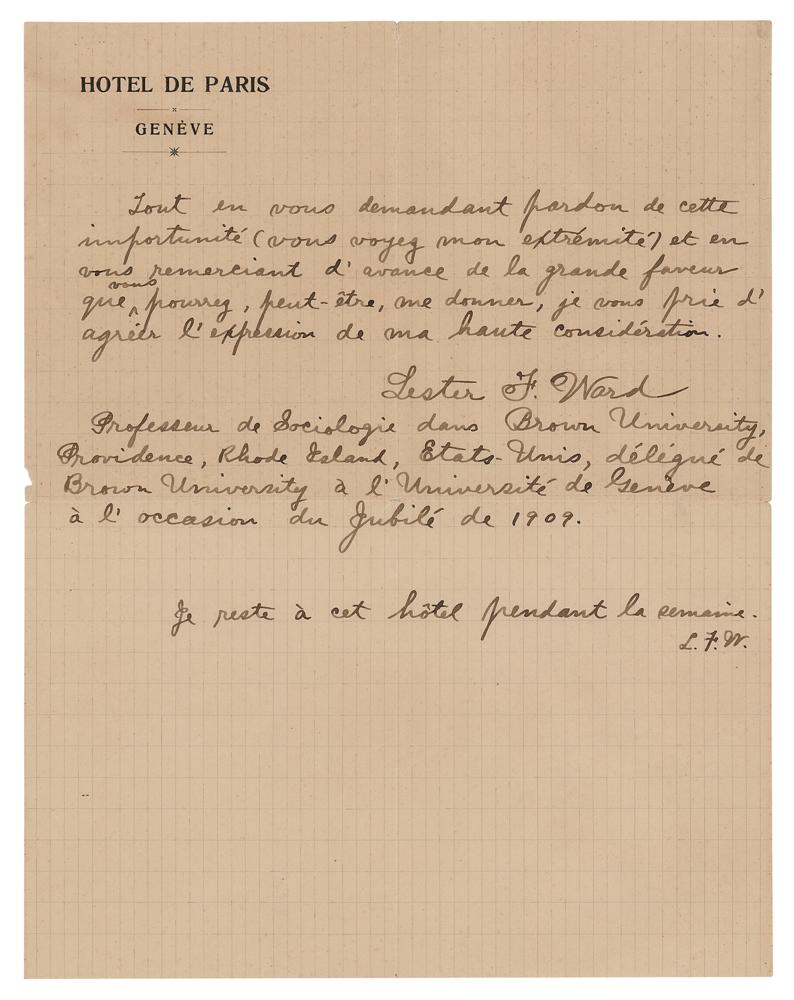 HOTEL DE PARIS
GENÈVE
Tout en vous demandant pardon de cette
importunité (vous voyez mon extrémité) et en
vous remerciant d' avance de la grande faveur
que vous pourrez, peut-être, me donner, je vous prie d'
agréer l'expression de ma haute considération.
Lester F. Ward
Professeur de Sociologie dans Brown University,
Providence, Rhode Island, Etats-Unis, délégué de
Brown University à l'Université de Genève
à l' occasion du Jubilé de 1909.
Je reste à cet hôtel pendant la semaine.
L. F. W.